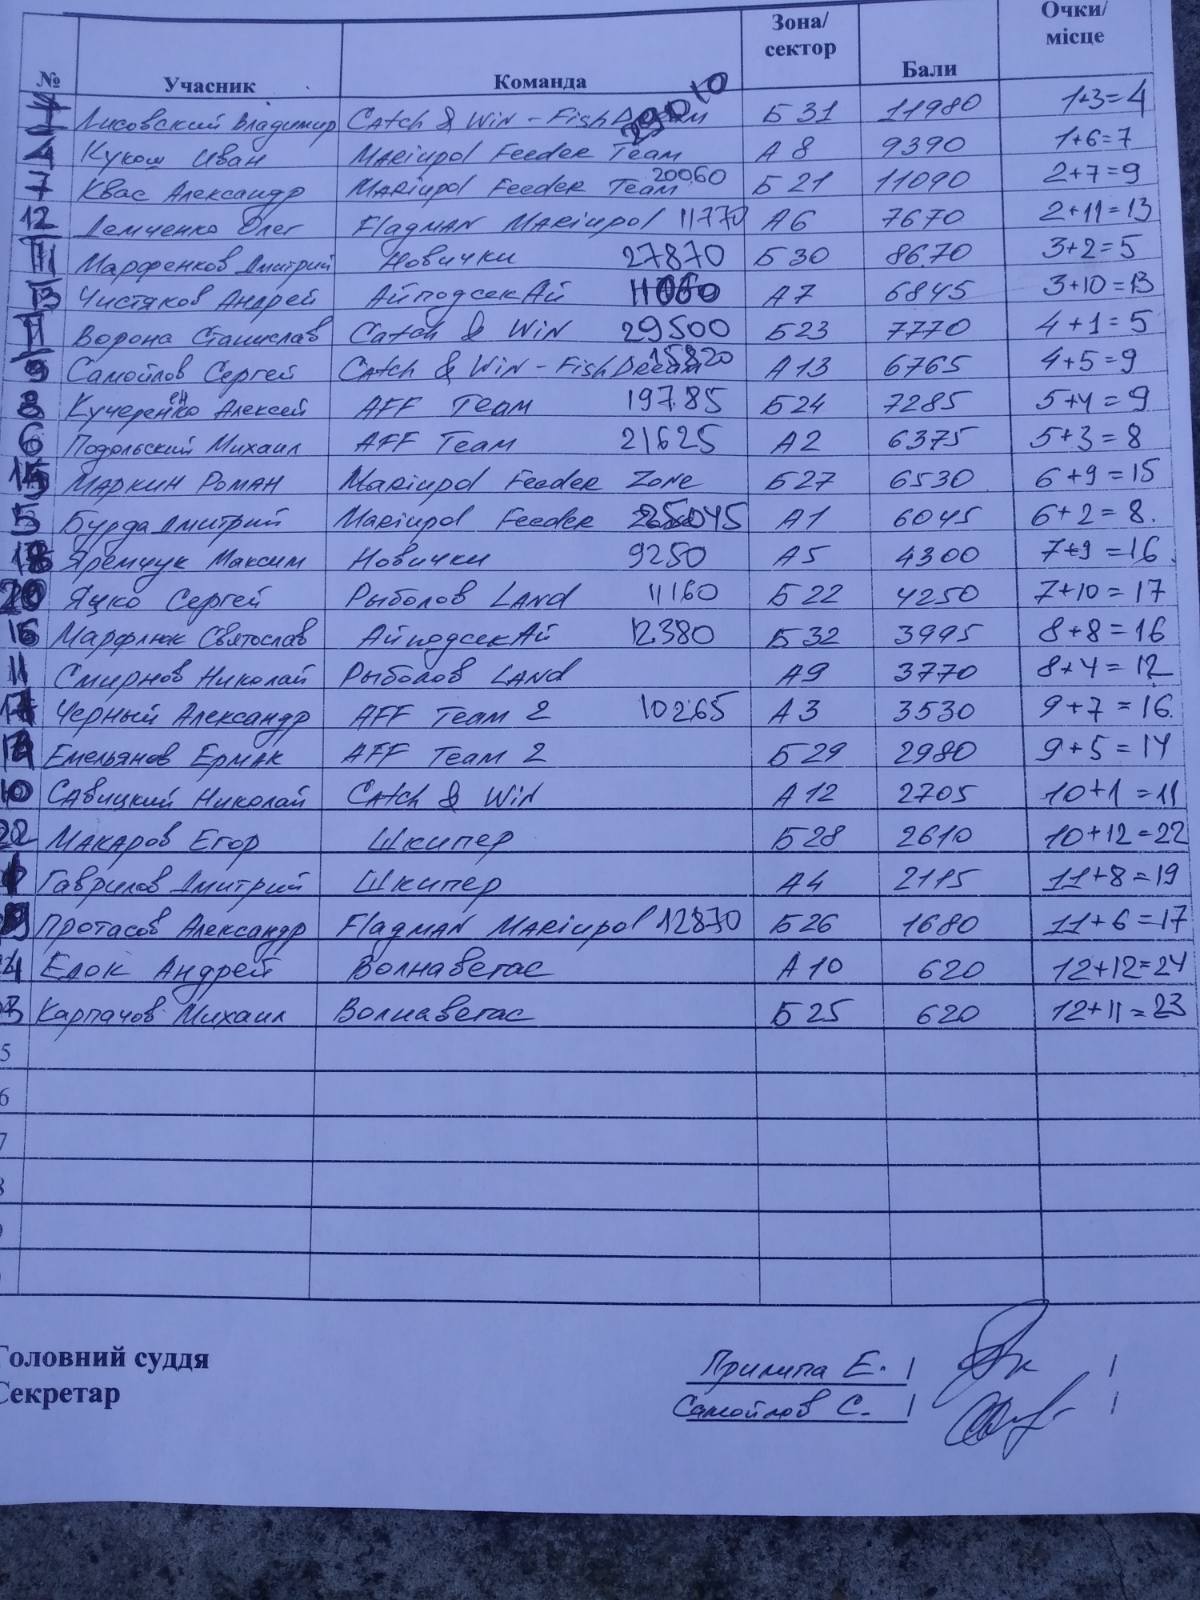 № Учасник Команда Зона/сектор Бали Очки/місце
Лисовский Владимир Catch & Win - Fish Dream 29010 Б 31 11980 1+3=4
Кукош Иван Mariupol Feeder Team А 8 9390 1+6=7
7 Квас Александр Mariupol Feeder Team 20060 Б 21 11090 2+7=9
12 Демченко Олег Flagman Mariupol 11770 А 6 7670 2+11=13
Марфенков Дмитрий Новички 27870 Б 30 8670 3+2=5
13 Чистяков Андрей АйподсекАй 11060 А 7 6845 3+10=13
Ворона Станислав Catch & Win 29500 Б 23 7770 4+1=5
9 Самойлов Сергей Catch & Win - Fish Dream 15820 А 13 6765 4+5=9
8 Кучеренко Алексей AFF Team 19785 Б 24 7285 5+4=9
6 Подольский Михаил AFF Team 21625 А 2 6375 5+3=8
Маркин Роман Mariupol Feeder Zone Б 27 6530 6+9=15
5 Бурда Дмитрий Mariupol Feeder 25045 А 1 6045 6+2=8.
Яремчук Максим Новички 9250 А 5 4300 7+9=16
20 Яцко Сергей Рыболов Land 11160 Б 22 4250 7+10=17
Марфлюк Святослав АйподсекАй 12380 Б 32 3995 8+8=16
11 Смирнов Николай Рыболов Land А 9 3770 8+4=12
Черный Александр AFF Team 2 10265 А 3 3530 9+7=16
Емельянов Ермак AFF Team 2 Б 29 2980 9+5=14
10 Савицкий Николай Catch & Win А 12 2705 10+1=11
22 Макаров Егор Шкипер Б 28 2610 10+12=22
Гаврилов Дмитрий Шкипер А 4 2115 11+8=19
Протасов Александр Flagman Mariupol 12870 Б 26 1680 11+6=17
Едок Андрей Волнавегас А 10 620 12+12=24
Карпачов Михаил Волнавегас Б 25 620 12+11=23
5
6
7
8
9
Головний суддя Прилипа Е.
Секретар Самойлов С.